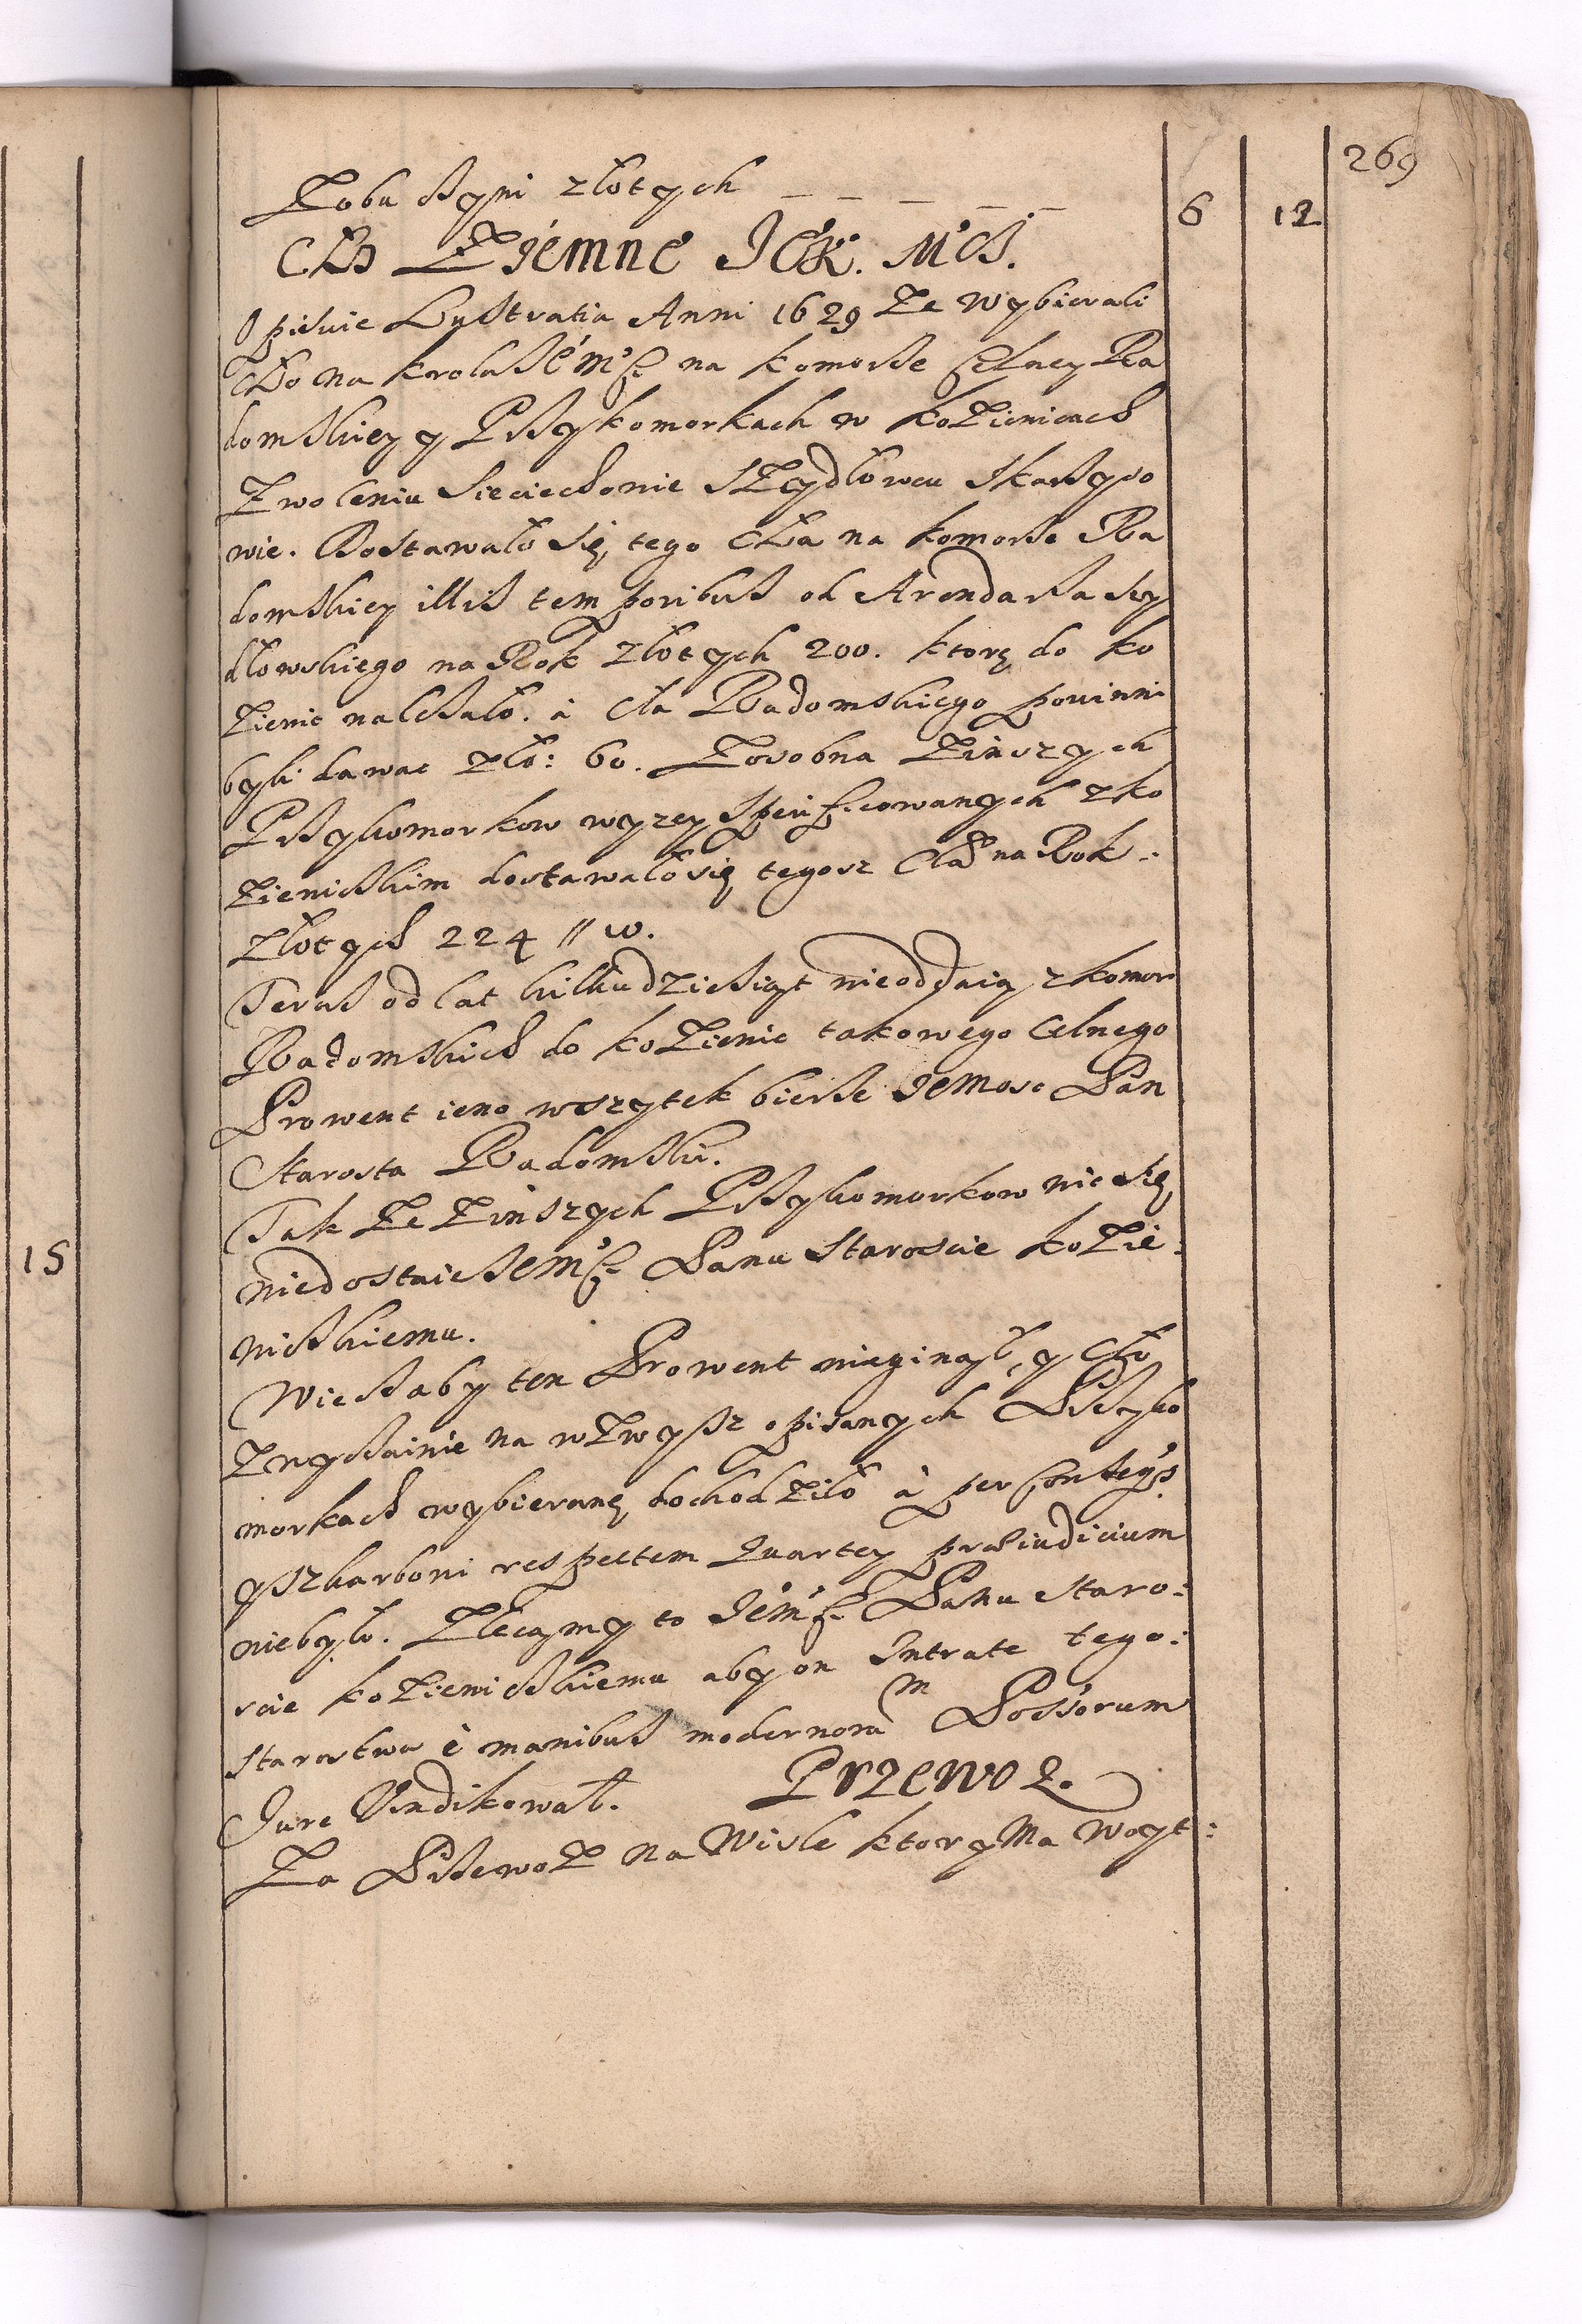 269
Z obu czyni złotych _ _ _ _ _ 6 12
Cło Ziemne JeK. Mci.
Opisuie Lustratia Anni 1629 że wybierali
Cło na krola JEmści na komorze Celney Ra
domskiey y Przykomorkach w kozienicach
Zwoleniu Sieciechowie Szydłowcu Skaryszo
wie. Dostawało się tego Cła na komorze Ra
domskiey illis temporibus od Arendarza Szy
dłowskiego na Rok złotych 200. ktore do ko
zienic należało. à Cła Radomskiego powinni
byli dawac zło: 60. Zosobna Zinszych
Przykomorkow wyzey specificowanych z ko
zienickim dostawało się tegosz Cła na Rok :
złotych 224 // w.
Teraz od lat kilkudziesiąt nieoddaią z komor
Radomskich do kozienic takowego Celnego
Prowent ieno wszytek bierze JeMosc Pan
Starosta Radomski.
Tak że Zinszych Przykomorkow nic się
niedostaie JEmści Panu Staroscie kozie:
nickiemu.
Wiec aby ten Prowent nieginął, y Cło
zwyczainie na wzwysz opisanych Przyko
morkach wybierane dochodziło à per Conseqs
y Szkarbowi respectem Quartey praeiudicium
niebyło. Zlecamy to Jemści Panu Staro:
scie kozienickiemu aby on Intrate tego:
starostwa è manibus modernorum Possorum
Jure Vindikował.
Przewoz.
Za Przewoz na Wisle ktory Ma Woyt:
15